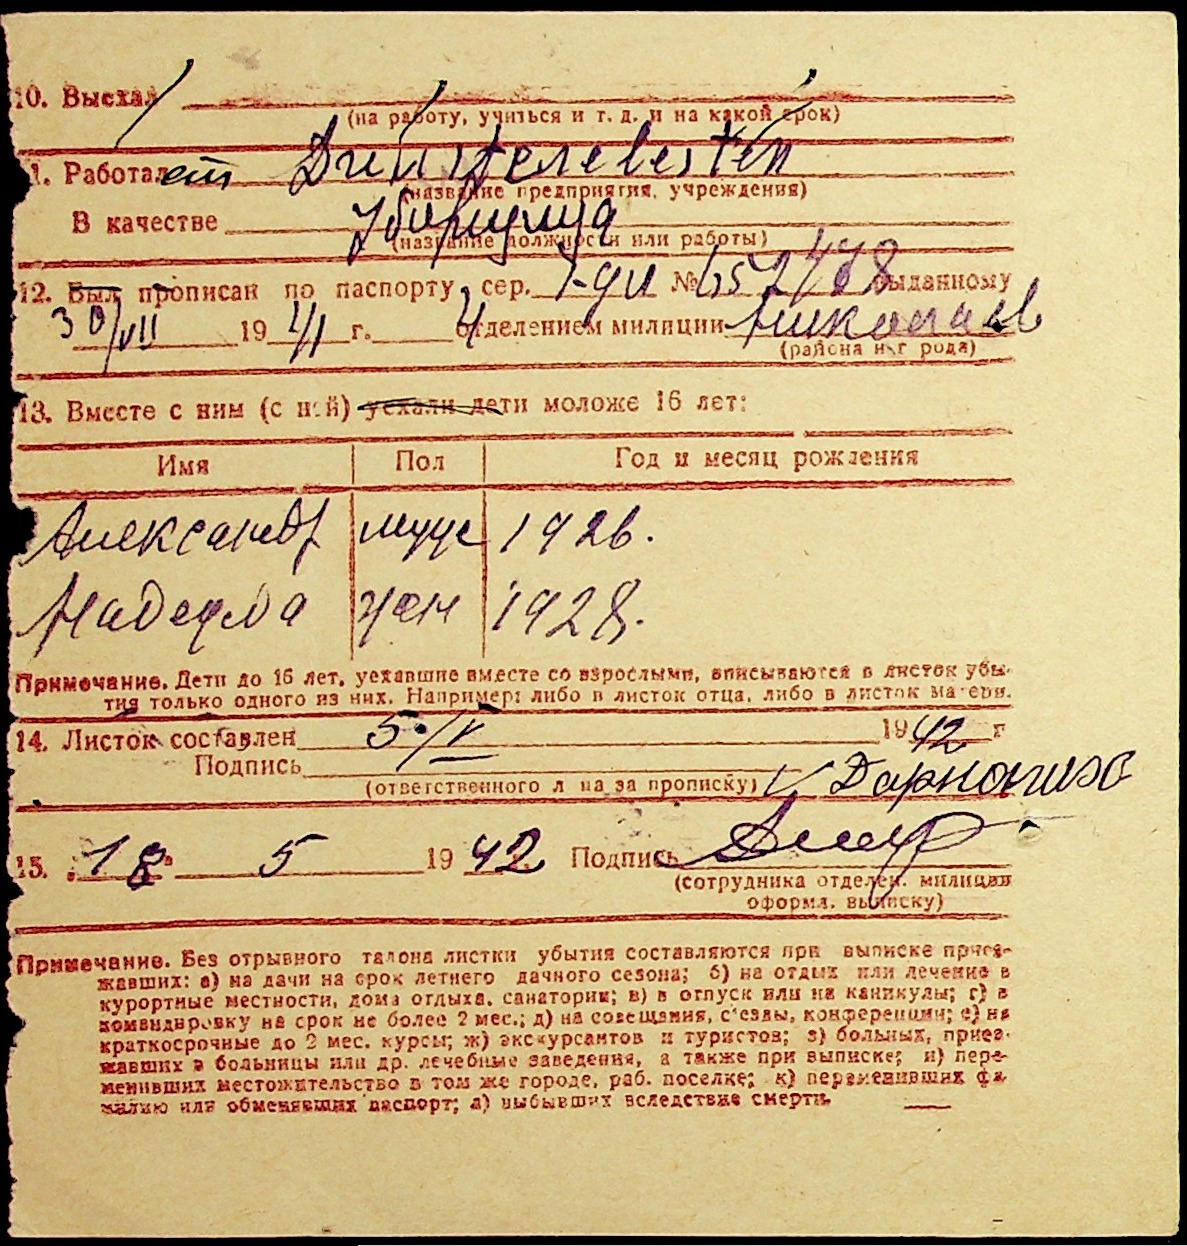 10. Выехал
(на работу, учиться и т. д. и на какой срок)
11. Работает
(название предприятия, учреждения)
В качестве Уборщица
(название должности или работы)
12. Был прописан по паспорту, сер. № 652478 выданному
30/VII 1941 г. 4 отделением милиции Николаев
(района и г рода)
13. Вместе с ним (с ней) уехали дети моложе 16 лет:
Имя Пол Год и месяц рождения
Александр муж 1926.
Надежда жен 1928.
Примечание. Дети до 16 лет, уехавшие вместе со взрослыми, вписываются в листок убы-
тия только одного из них. Например: либо в листок отца, либо в листок матери.
14. Листок составлен 5/V 1942 г
Подпись
(ответственного л на за прописку)
15. 18 5 1942 Подпись
(сотрудника отделен. милиции
оформл. выписку)
Примечание. Без отрывного талона листки убытия составляются при выписке приез-
жавших: а) на дачи на срок летнего дачного сезона; б) на отдых или лечение в
курортные местности, дома отдыха, санатории; в) в отпуск или на каникулы; г) в
командировку на срок не более 2 мес.; д) на совещания, с'езды, конференции; е) на
краткосрочные до 2 мес. курсы; ж) экскурсантов и туристов; з) больных, приез-
жавших в больницы или др. лечебные заведения, а также при выписке; и) пере-
менивших местожительство в том же городе, раб. поселке; к) переменивших фа-
милию или обменявших паспорт; л) выбывших вследствие смерти.